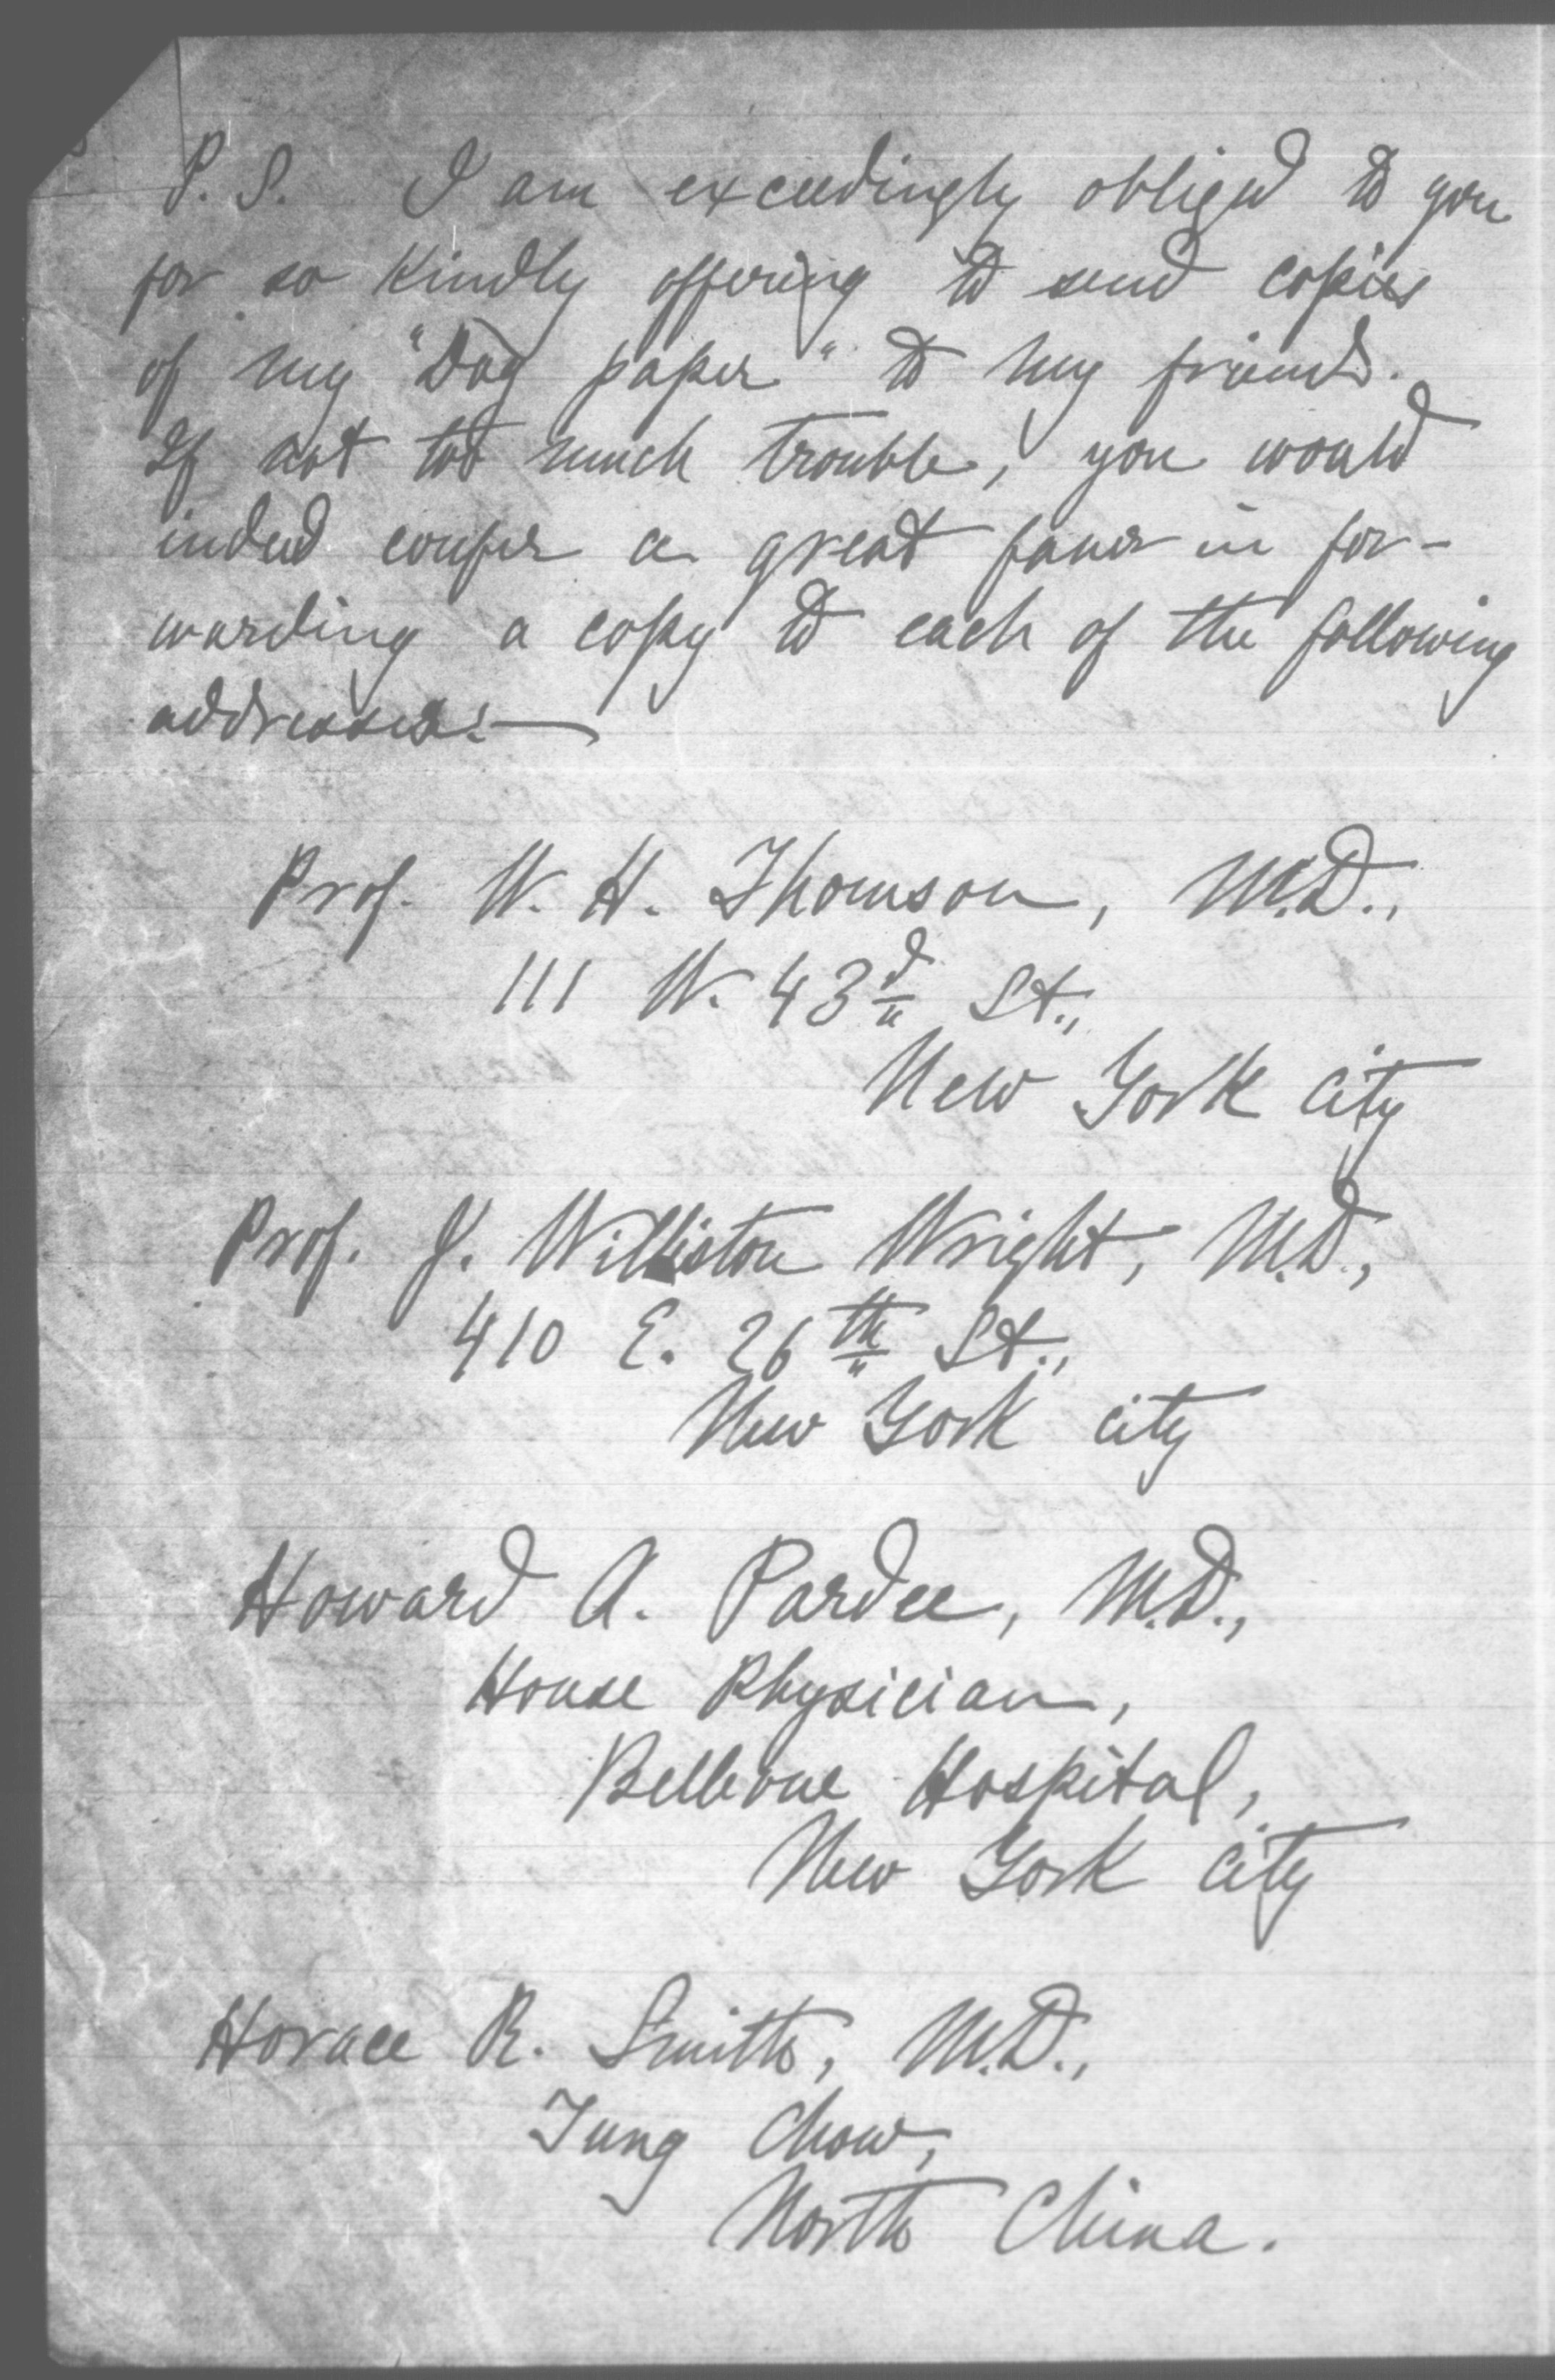 P. S. I am exceedingly obliged to you
for so kindly offering to send copies
of my "Dog paper" to my friends.
If not too much trouble, you would
indeed confer a great favor in for-
warding a copy to each of the following
addresses:—
Prof. W. H. Thomson, M.D.,
111 W. 43d St.,
New York City
Prof. J. Williston Wright, M.D.,
410 E. 26th St.,
New York City
Howard A. Pardee, M.D.,
House Physician,
Bellevue Hospital,
New York City
Horace R. Smith, M.D.,
Tung Chow,
North China.